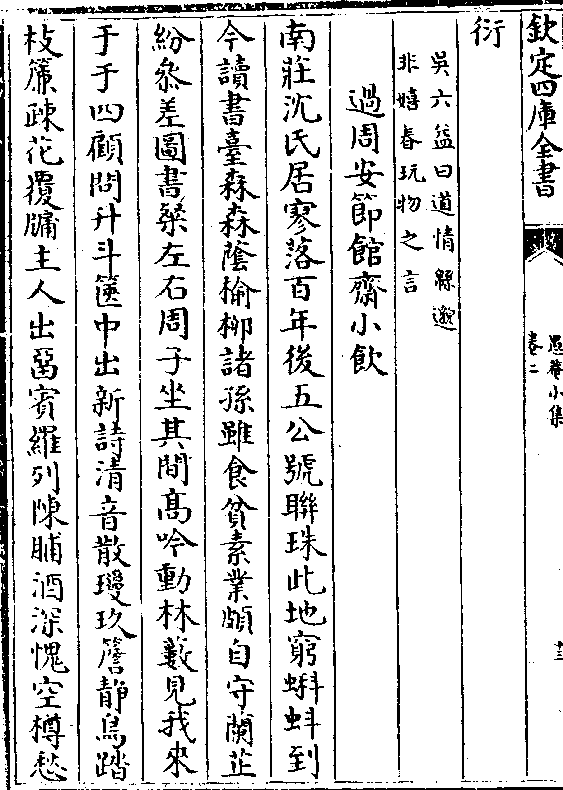 欽定四庫全書
愚菴小集
卷二
十三
衍
吳六益曰道情緜邈
非嬉春玩物之言
過周安節館齋小飲
南莊沈氏居寥落百年後五公號聯珠此地窮蝌蚪到
今讀書臺森森蔭榆柳諸孫雖食貧素業頗自守蘭芷
紛叅差圖書粲左右周子坐其間高吟動林藪見我來
于于四顧問升斗篋中出新詩清音散璁玖簷静鳥踏
枝簾疎花覆牖主人出留賓羅列陳脯酒深愧空樽愁